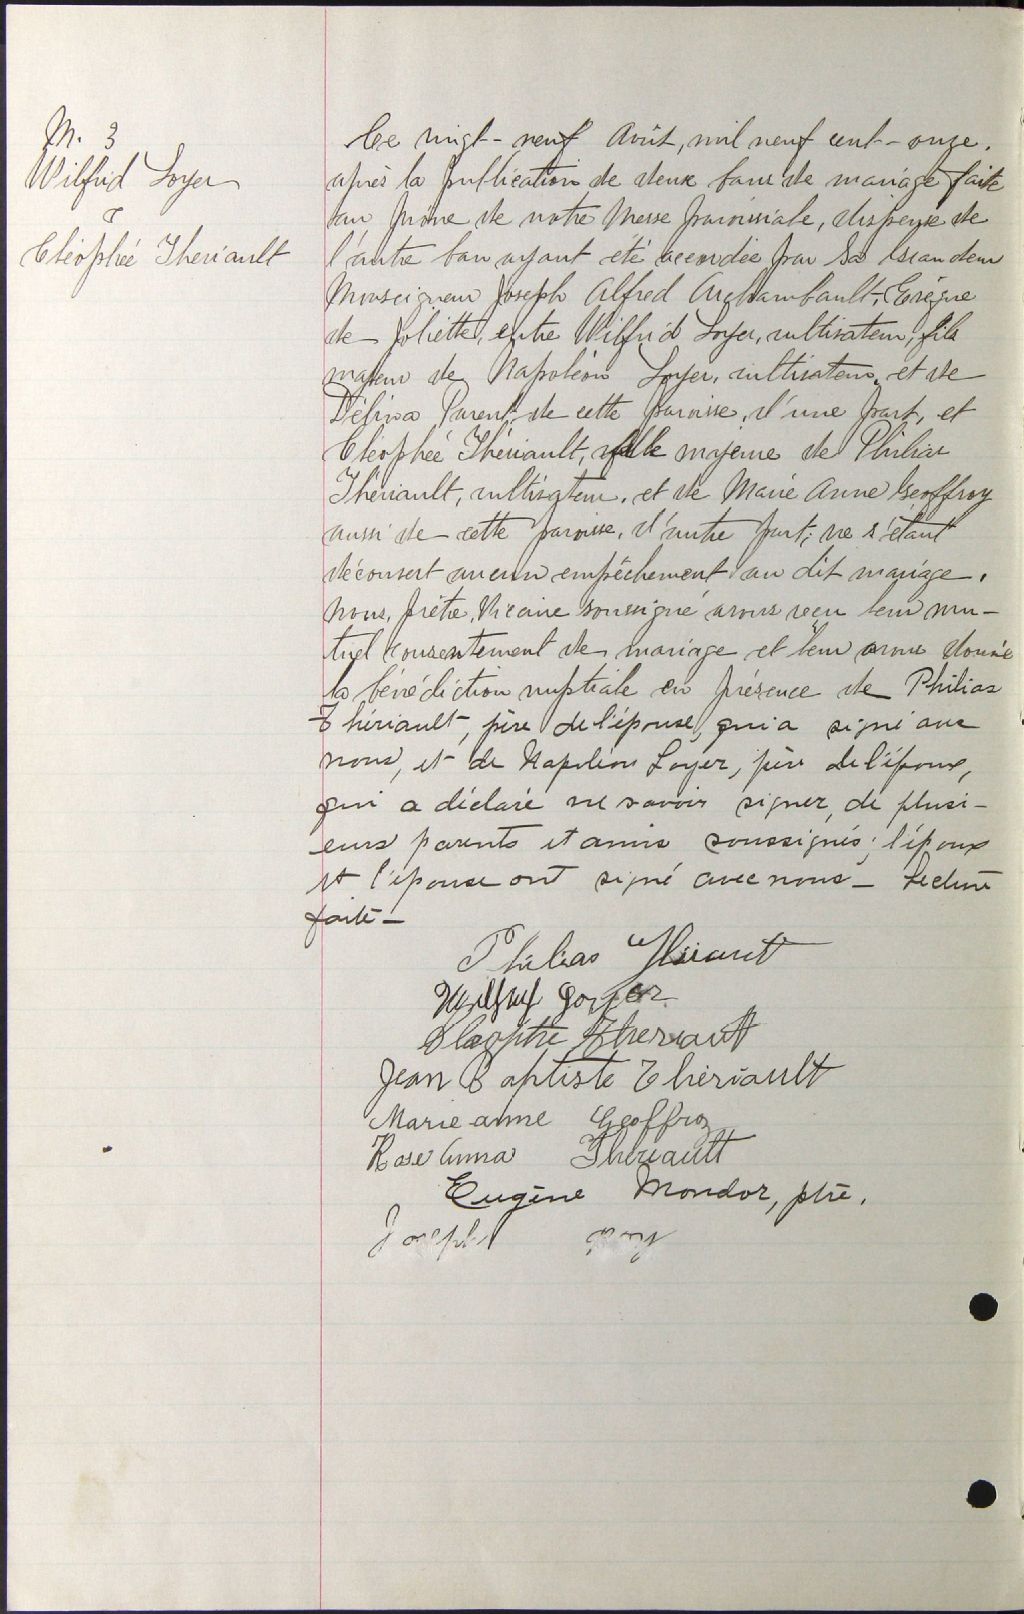 M. 3
Wilfrid Loyer
&
Cléophée Thériault
Ce vingt-neuf Août, mil neuf cent-onze.
après la publication de deux bans de mariage faite
au prône de notre Messe paroissiale, dispense de
l'autre ban ayant été accordée par Sa Grandeur
Monseigneur Joseph Alfred Archambault, Evêque
de Joliette, entre Wilfrid Loyer, cultivateur, fils
majeur de Napoléon Loyer, cultivateur, et de
Délina Parent, de cette paroisse, d'une part, et
Cléophée Thériault, fille majeure de Philias
Thériault, cultivateur, et de Marie Anne Geoffroy
aussi de cette paroisse, d'autre part; ne s'étant
découvert aucun empêchement au dit mariage,
Nous, prêtre, Vicaire soussigné avons reçu leur mu-
tuel consentement de mariage et leur avons donné
la bénédiction nuptiale en présence de Philias
Thériault, père de l'épouse, qui a signé avec
nous, et de Napoléon Loyer, père de l'époux,
qui a déclaré ne savoir signer, de plusi-
eurs parents et amis soussignés; l'époux
et l'épouse ont signé avec nous - Lecture
faite -
Philias Thériault
Wilfrid Loyer
Cléophé Theriault
Jean Baptiste Thériault
Marie anne Geoffroy
Rose Anna Thériault
Eugène Mondor, ptre.
Joseph Roy